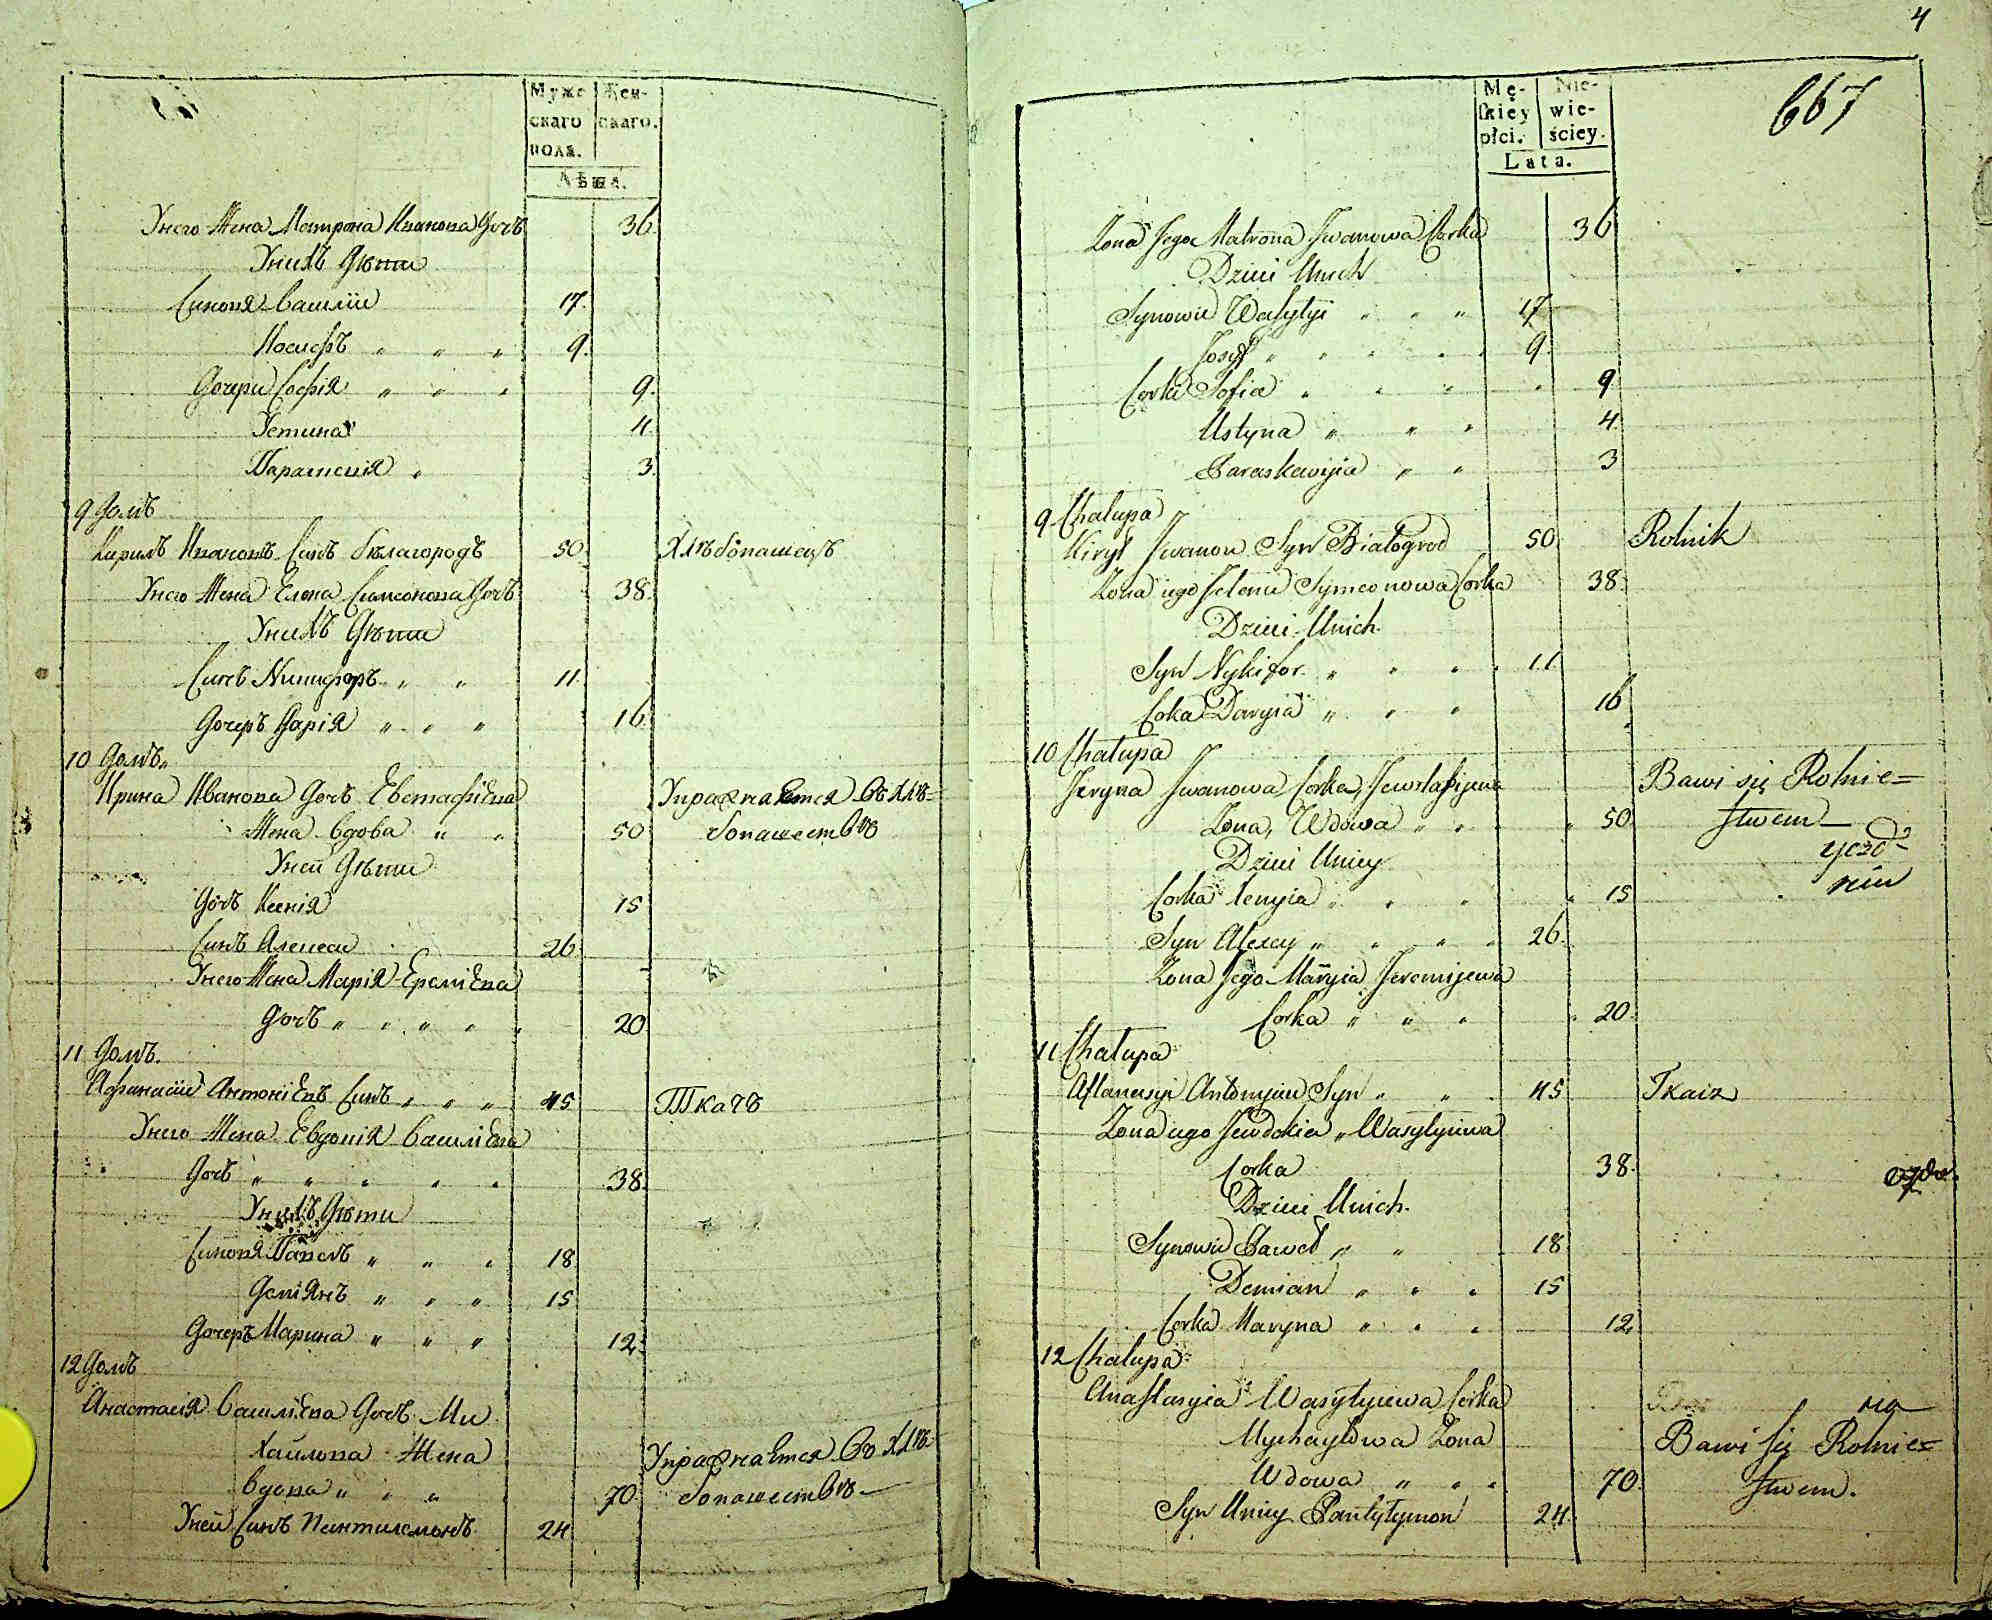 Муже
скаго
пола.
Жен-
скаго.
Лѣта.
Унего Жена Матрона Иванова Дочъ 36.
Унихъ Дѣти
Синовя Василiи 17.
Иосифъ „ „ „ 9.
Дочери Софiя „ „ „ 9.
Устина 4.
Параскевiя „ 3.
9 Домъ
Кирилъ Ивановъ Синъ Бѣлагородъ 50. Хлѣбопашецъ
Унего Жена Елена Симеонова Дочъ 38.
Унихъ Дѣти
Синъ Никифоръ „ „ 11.
Дочеръ Дарiя „ „ „ 16.
10 Домъ „
Ирина Иванова Дочъ Евстафiева Упражнается въ хлѣ-
Жена вдова „ „ 50. бопашествѣ
Уней Дѣти
Дочъ Ксенiя 15
Синъ Алексеи 26.
Унего Жена Марiя Еремiева
Дочъ „ „ „ „ „ 20
11 Домъ.
Афанасiи Антонiевъ Синъ „ „ „ 45 Ткачъ
Унего Жена Евдокiя Василiева
Дочъ „ „ „ „ „ 38.
Унихъ Дѣти
Синовя Павелъ „ „ „ 18
Демiянъ „ „ „ 15
Дочеръ Марина „ „ „ 12.
12 Домъ
Анастасiя Василiева Дочъ Ми
хаилова Жена Упражнается въ хлѣ-
вдова „ „ „ 70. бопашествѣ —
Уней Синъ Пантилемонъ 24.
4
667
Mę-
skiey
płci.
Nie-
wie-
ściey.
Lata.
Zona Jego Matrona Jwanowa Corka 36
Dzieci Unich
Synowie Wasylyi „ „ „ 17
Josyf „ „ „ „ „ 9
Corki Sofia „ „ „ „ 9
Ustyna „ „ „ 4.
Paraskewyia „ „ 3
9 Chalupa
Kirył Jwanow Syn Białogrod 50. Rolnik
Zona iego Jelena Symeonowa Corka 38.
Dzieci Unich.
Syn Nykifor. „ „ „ „ 11
Corka Daryia „ „ „ 16
10 Chałupa
Jeryna Jwanowa Corka, Jewstafijewa Bawi się Rolnic=
Zona, Wdowa „ „ „ 50. stwem —
Dzieci Uniey
Corka Xenyia „ „ „ „ 15
Syn Alexey „ „ „ „ 26.
Zona Jego Maryia Jeremijewa
Corka „ „ „ „ 20.
11 Chałupa
Aftanasyi Antonyiew Syn „ „ „ 45 Tkacz
Zona iego Jewdokia „ Wasylyiewa
Corka 38.
Dzieci Unich.
Synowie Paweł „ „ „ 18
Demian „ „ „ 15
Corka Maryna „ „ „ 12,
12 Chalupa
Anastasyia Wasylyiewa Corka на
Mychayłowa Zona Bawi się Rolnic=
Wdowa „ „ „ 70. stwem.
Syn Uniey Pantylymon 24.